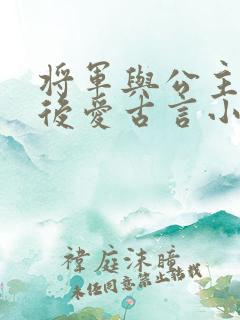 將軍與公主
後愛古言小
禕庭沫瞳
未经同意禁止转载